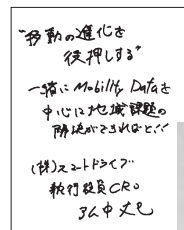 "移動の進化を
後押しする"
一緒に Mobility Dataを
中心に地域課題の
解決ができればと!!
(株)スマートドライブ
執行役員CRO
弘中 丈巳